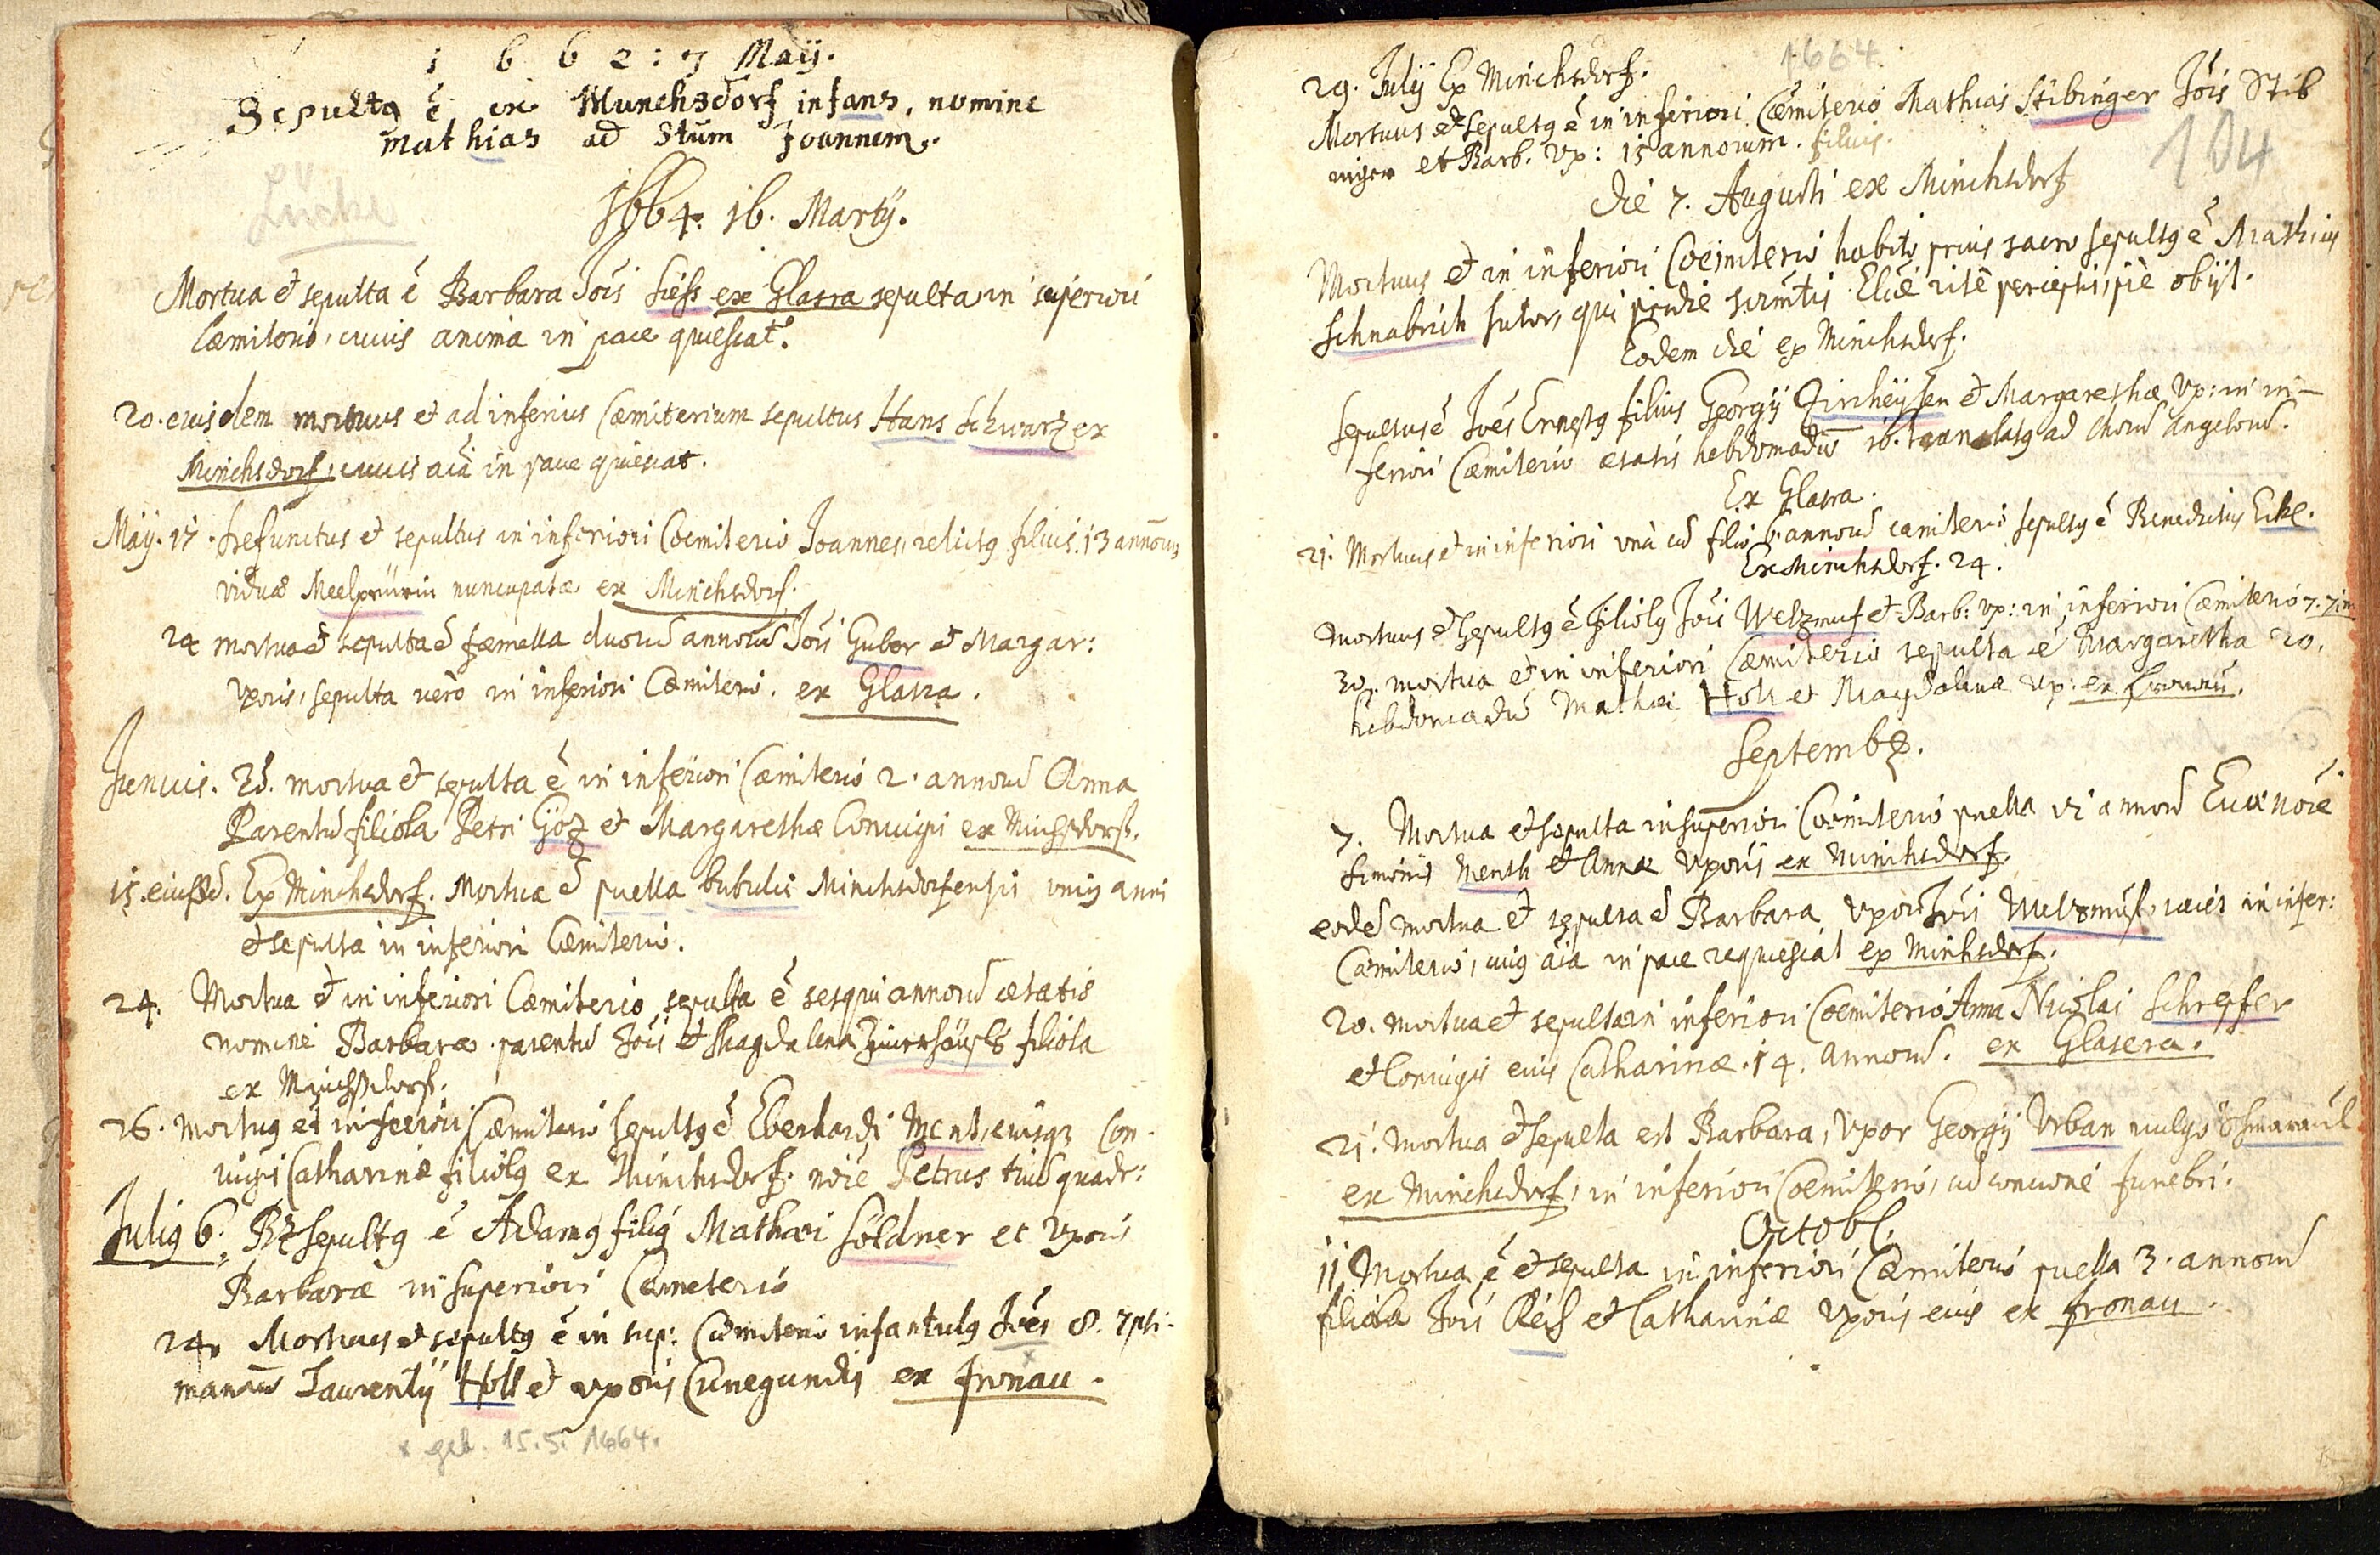 1 6 6 2 : 7 Maÿ.
Sepultq ē ex Munchsdorf infans, nomine
mathias ad Stum Joannem.
Lücke
1664. 16. Martÿ.
Mortua et sepulta ē Barbara Jois Siess ex Glasra sepulta in superiori
Cæmiterio, cuius anima in pace quiescat.
20. eiusdem mortuus et ad inferius Cæmiterium sepultus Hans Schwarz ex
Minichsdorf, cuius aīa in pace quiescat.
Maÿ. 17. Defunctus et sepultus in inferiori Coemiterio Joannes, relictq filius. 13 annorū
viduæ nuncupatæ ex Minichsdorf.
24 mortua et sepulta ē fæmella duorū annorū Jois Guber et Margar:
Vxoris, sepulta vero in inferiori Cæmiterio. ex Glasra.
Junius. 23. mortua et sepulta ē in inferiori Cæmiterio 2. annorū Anna
Parentū filiola Petri Göz et Margarethæ Coniugis ex Minchsdorff.
15. eiusd. Ex Minchsdorf. Mortua ē puella bubulci Minchsdorfensis unius anni
et sepulta in inferiori Cæmiterio.
24. Mortua et in inferiori Cæmiterio sepulta ē sesqui annorū ætatis
nomine Barbara. parentū Jois et Magdalena filiola
ex Minchsdorf.
26. mortuq et in inferiori Cæmiterio sepultq ē Eberhardi Ment, eiusqz Con-
iugis Catharinæ filiolq ex Minchsdorf. noīe Petrus
Juliq 6. sepultq ē Adamq filiq Mathæi Söldner et Vxoris
Barbaræ in superiori Cæmeterio
24. Mortuus et sepultq ē in sup: Cæmiterio infantulq Joēs 8. 7pti-
manarū Laurentÿ Holl et uxoris Cunegundis ex Fronau.
x geb. 15.5. 1664.
1664.
104
29. Julÿ Ex Minichsdorf.
Mortuus et sepultq ē in inferiori Cæmiterio Mathias Stibinger Jois Stib
inger et Barb. Vx: 15 annorum. filius.
die 7. Augusti ex Minchsdorf
Mortuus et in inferiori Coemiterio habito prius sacro sepultq ē Mathias
Schnabrich sutor, qui pridie rite perceptis, pie obÿt.
Eodem die ex Minchsdorf.
Sepultus ē Joēs Ernestq filius Georgÿ et Margarethæ Vx: in in-
feriori Cæmiterio ætatis hebdomadū 16. translatq ad chorū Angelorū.
Ex Glasra.
21. Mortuus et in inferiori unà cū filio 6. annorū cæmiterio sepultq ē Benedictus Ecke.
Ex Minchsdorf. 24.
Mortuus et sepultq ē filiolq Jois Welzmus et Barb: Vx: in inferiori Cæmiterio 7.
30. mortua et in inferiori Cæmiterio sepulta ē Margaretha 20.
hebdomadū Mathæi Holl et Magdalenæ Vx: ex Fronau.
Septemb.
7. Mortua et sepulta in superiori Coemiterio puella VI annorū Eua noīe
Simonis Menth et Annæ Vxoris ex Minchsdorf.
eodē mortua et sepulta ē Barbara Vxor Jois Welzmuss, iacet in infer:
Cæmiterio, cuiq aīa in pace requiescat ex Minchsdorf.
20. mortua et sepulta in inferiori Coemiterio Anna Nicolai Schrepfer
et Coniugis eius Catharinæ. 14. annorū. ex Glasera.
21. Mortua et sepulta est Barbara, Vxor Georgÿ Urban vulgo
ex Minchsdorf, in inferiori Coemiterio, cū concione funebri.
Octob.
11 Mortua ē et sepulta in inferiori Cæmiterio puella 3. annorū
filiola Jois Reis et Catharinæ Vxoris eius ex Fronau.